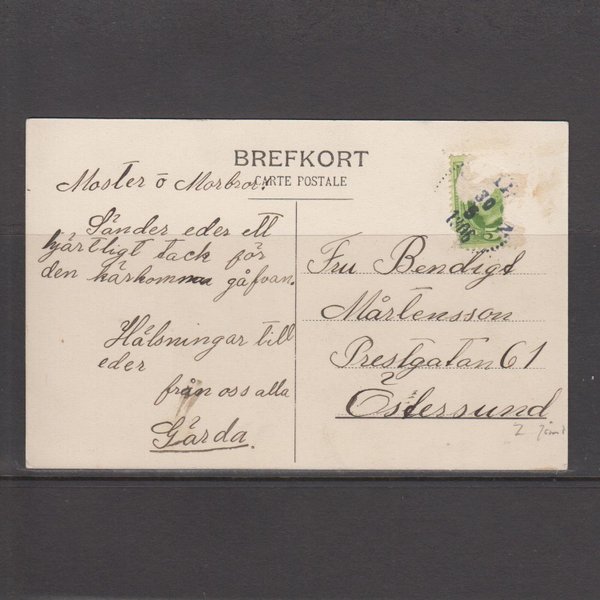 BREFKORT
CARTE POSTALE
Moster o Morbror!
Sänder eder ett
hjärtligt tack för
den kärkomna gåfvan.
Hälsningar till
eder
från oss alla
Gärda.
30
5
1906
Fru Bendigt
Mårtensson
Prestgatan 61
Östersund